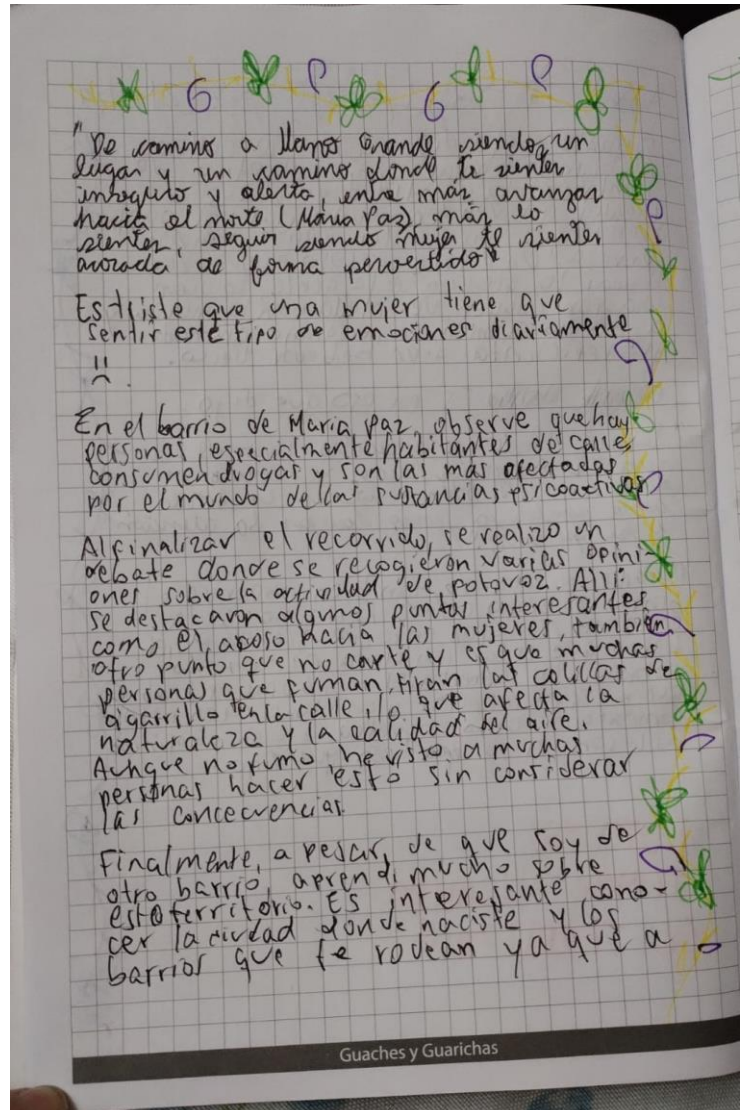 "De camino a llanos Grande siendo, un
lugar y un camino donde te sientes
inseguro y alerta, entre más avanzas
hacia el norte (Maria Paz), más lo
sientes, seguir siendo mujer te sientes
acosada de forma pervertido"
Es triste que una mujer tiene que
sentir este tipo de emociones diariamente
En el barrio de Maria paz, observe que hay
personas, especialmente habitantes de calle,
consumen drogas y son las más afectadas
por el mundo de las sustancias psicoactivas
Al finalizar el recorrido, se realizo un
debate donde se recogieron varias opini-
ones sobre la actividad de potovoz. Alli
se destacaron algunos puntos interesantes
como el acoso hacia las mujeres, también
otro punto que no carte y es que muchas
personas que fuman, tiran las colillas de
cigarrillo en la calle, lo que afecta la
naturaleza y la calidad del aire.
Aunque no fumo, he visto a muchas
personas hacer esto sin considerar
las concecuencias.
Finalmente, a pesar, de que soy de
otro barrio, aprendi mucho sobre
este territorio. Es interesante cono-
cer la ciudad donde naciste y los
barrios que te rodean ya que a
Guaches y Guarichas